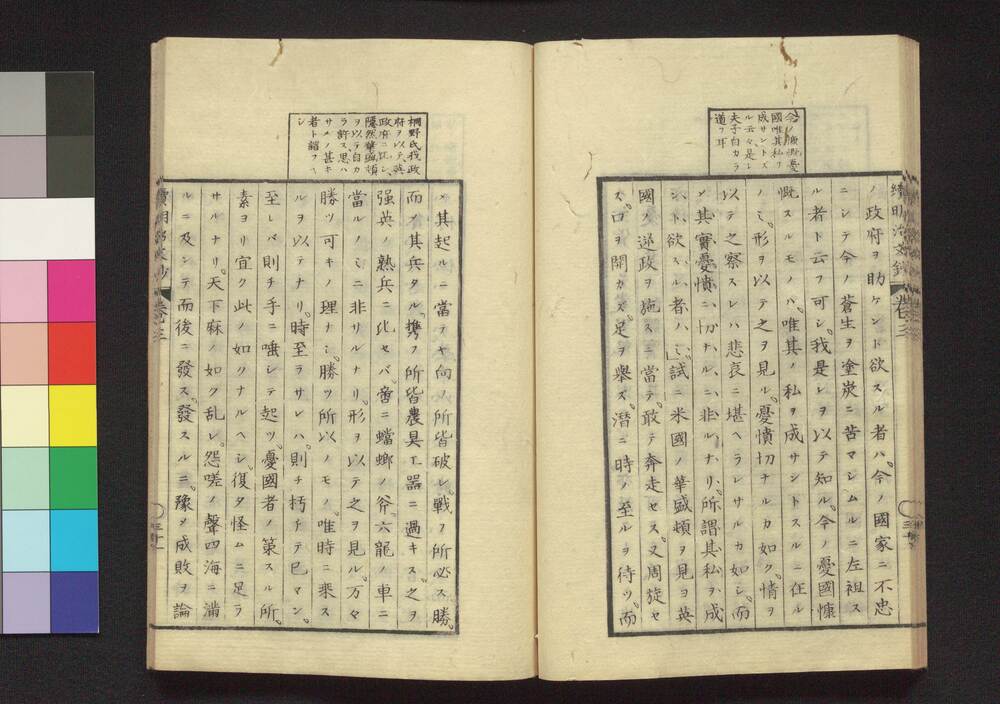 續明治文鈔 卷三
今ノ慷慨憂
國唯其私ヲ
成サントス
ル云々是レ
夫子自カラ
道フ耳
ノ政府ヲ助ケント欲スル者ハ。今ノ國家ニ不忠
ニシテ今ノ蒼生ヲ塗炭ニ苦マシムルニ左袒ス
ル者ト云フ可シ。我是レヲ以テ知ル。今ノ憂國慷
慨スルモノハ。唯其ノ私ヲ成サントスルニ在ル
ノミ。形ヲ以テ之ヲ見ル。憂憤切ナルカ如ク。情ヲ
以テ之察スレハ悲哀ニ堪ヘラレサルカ如シ。而
シ其實憂憤ニ切ナルニ非ルナリ。所謂其私ヲ成
シト欲スル者ハミ。試ニ米國ノ華盛頓ヲ見ヨ英
國ノ逆政ヲ施スニ當テ。敢テ奔走セス。又周旋セ
ス。口ヲ開カズ。足ヲ舉ズ。潜ニ時ノ至ルヲ待ツ。而
桐野氏我政
府ヲ以テ英
政府ニ比シ
隱然華盛頓
ヲ以テ自カ
ラ許ス思ハ
サルノ甚キ
者ト謂フヘ
シ
〆其起ルニ當テヤ向フ所皆破レ。戰フ所必ス勝。
而シ其兵タル。携フ所皆農具工器ニ過キス。之ヲ
强英ノ熟兵ニ比セバ。啻ニ蟷螂ノ斧。六龍ノ車ニ
當ルノミニ非サルナリ。形ヲ以テ之ヲ見ル。万々
勝ツ可キノ理ナシ。勝ツ所以ノモノ。唯時ニ乘ス
ルヲ以テナリ。時至ラサレハ。則チ朽チテ已マン。
至レバ則チ手ニ唾シテ起ツ。憂國者ノ策スル所。
素ヨリ宜ク此ノ如クナルヘシ。復タ怪ムニ足ラ
サルナリ。天下麻ノ如ク乱レ。怨嗟ノ聲四海ニ滿
ルニ及ンテ而後ニ發ス。發スルニ。豫メ成敗ヲ論
續明治文鈔 卷三